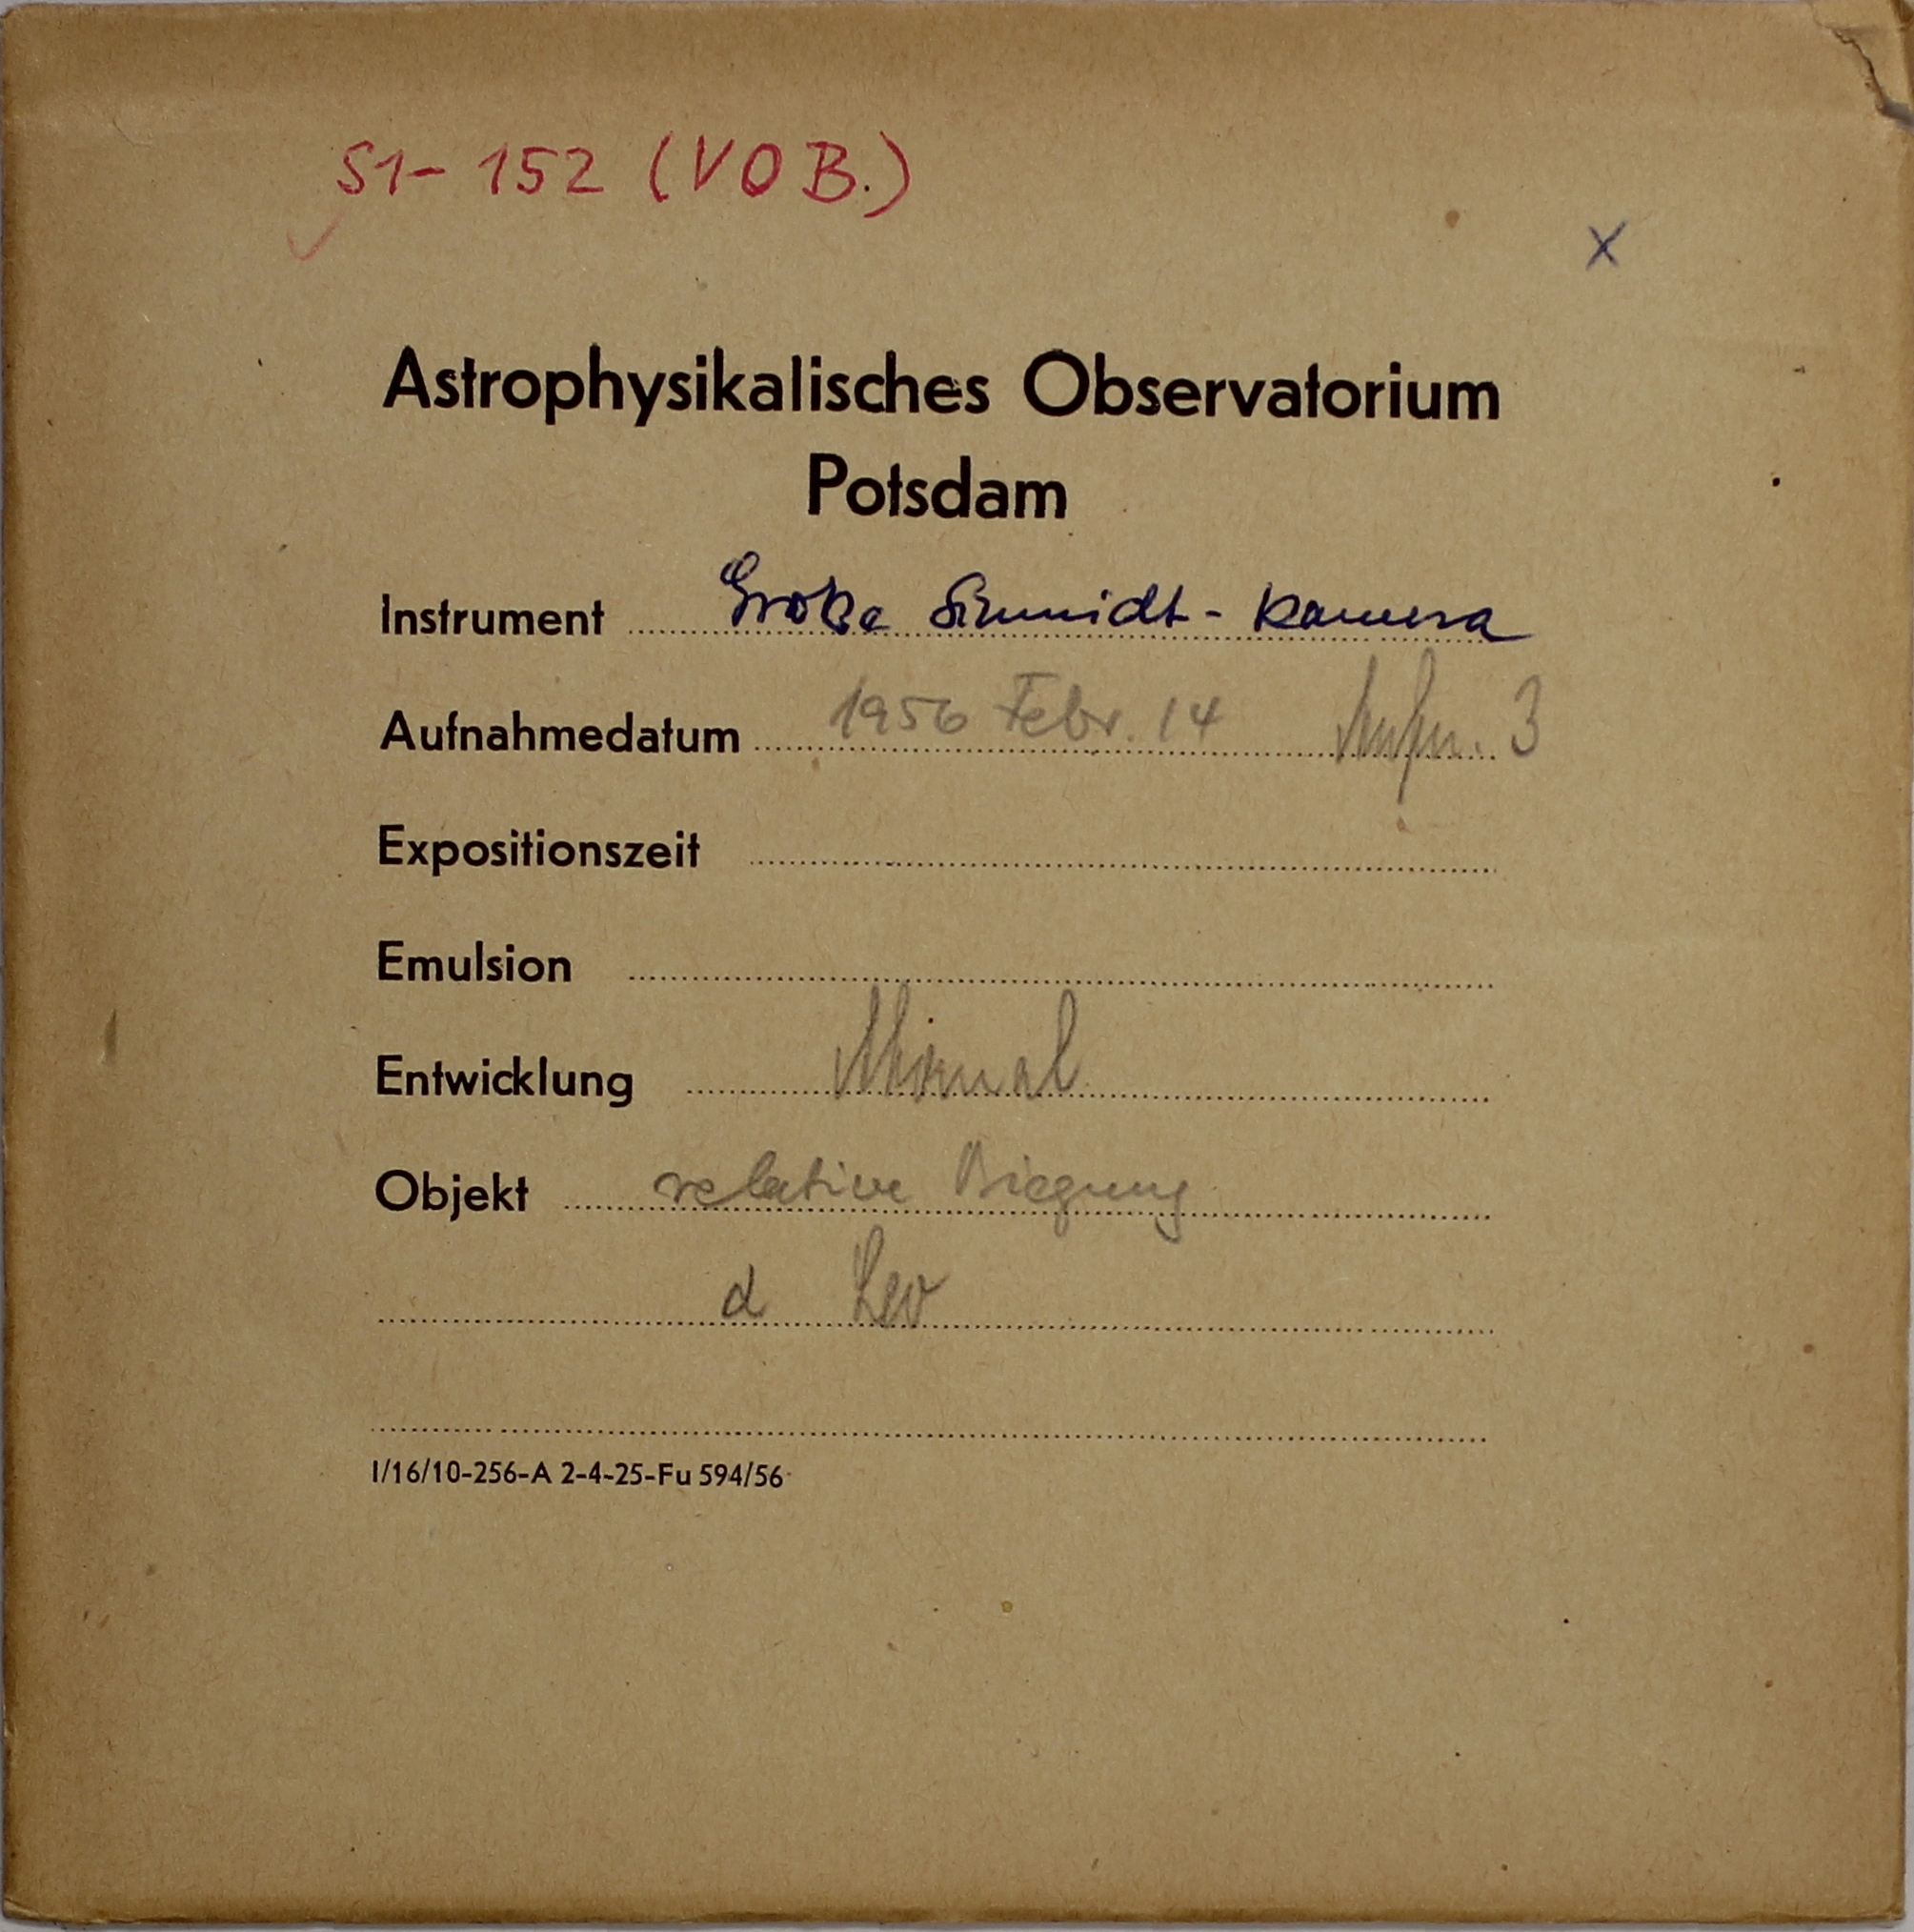 S1-152 (VOB.)
x
Astrophysikalisches Observatorium
Potsdam
Instrument Große Schmidt-Kamera
Aufnahmedatum 1956 Febr. 14 Aufn. 3
Expositionszeit
Emulsion
Entwicklung
Objekt relative Biegung
α Leo
I/16/10-256-A 2-4-25-Fu 594/56